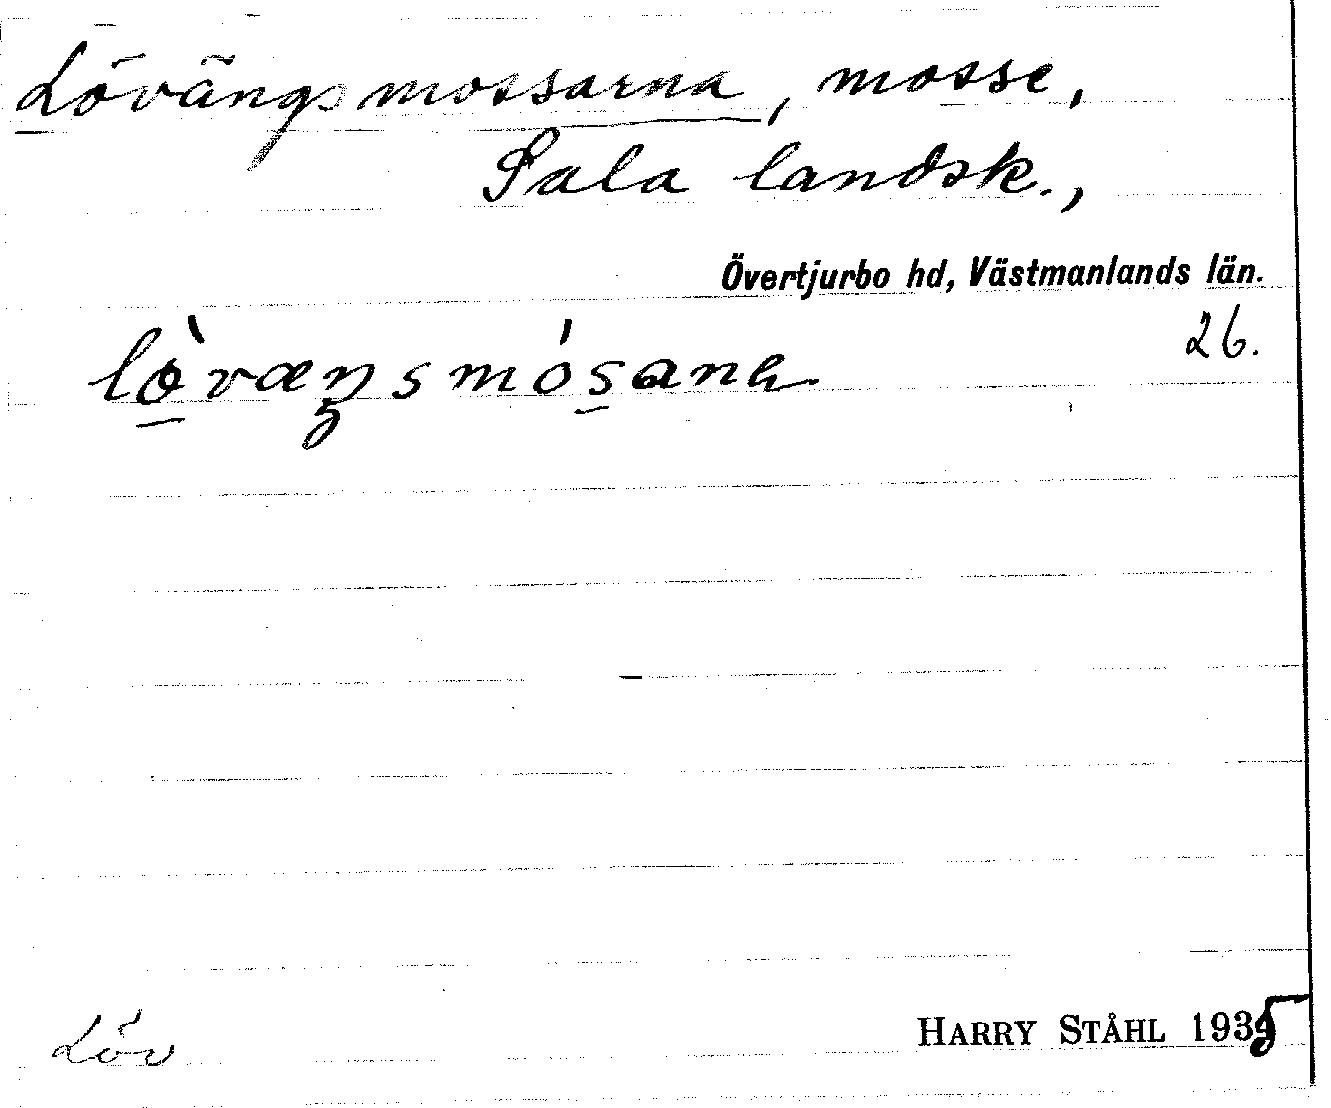 Lövängsmossarna, mosse,
Sala landsk.,
Övertjurbo hd, Västmanlands län.
26.
HARRY STÅHL 1935
Löv